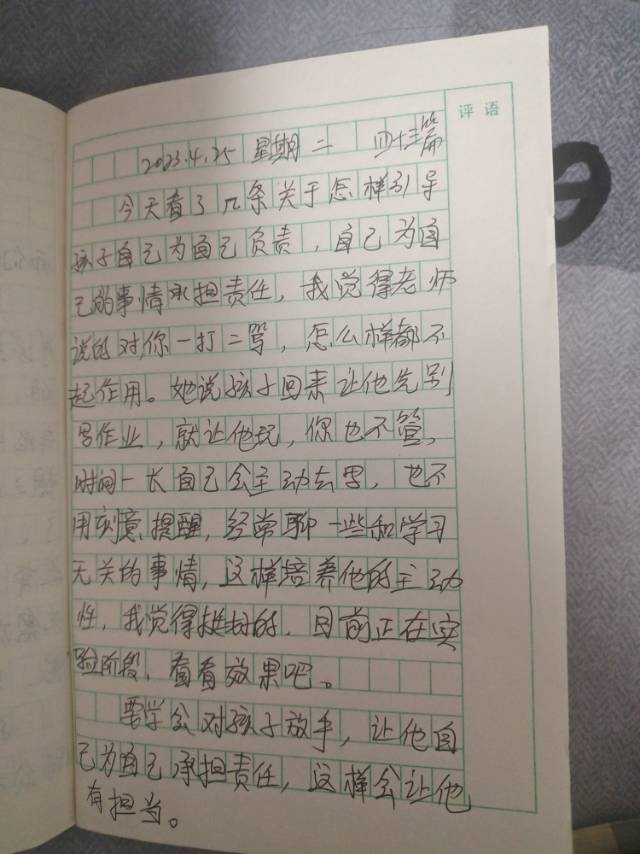 评语
2023.4.25 星期二 四十三篇
今天看了几条关于怎样引导
孩子自己为自己负责，自己为自
己的事情承担责任，我觉得老师
说的对，你一打二骂，怎么样都不
起作用。她说孩子回来让他先别
写作业，就让他玩，你也不管，
时间一长自己会主动去写，也不
用刻意提醒，经常聊一些和学习
无关的事情，这样培养他的主动
性，我觉得挺好的，目前正在实
验阶段，看看效果吧。
要学会对孩子放手，让他自
己为自己承担责任，这样会让他
有担当。